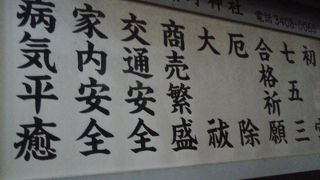 神社
電話3408-
初
七五三
合格祈願
厄除
大祓
商売繁盛
交通安全
家内安全
病気平癒